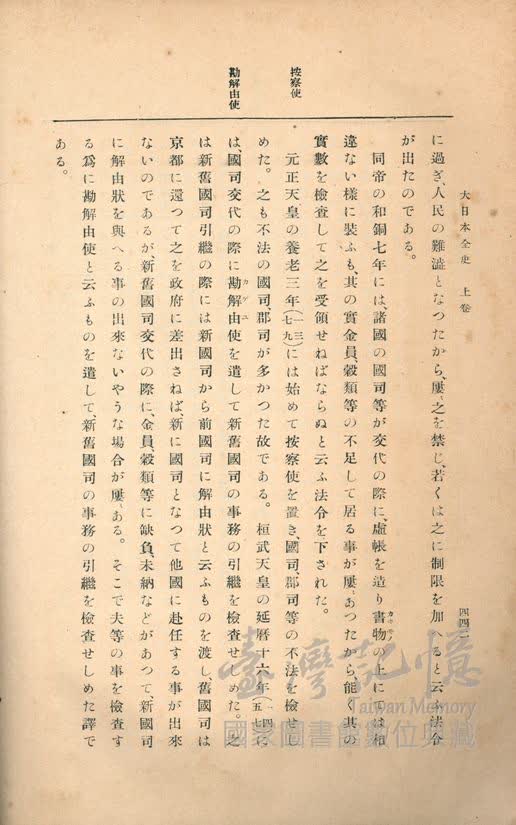 大日本全史　上卷
四四二
に過ぎ、人民の難澁となつたから、屢〻之を禁じ、若くは之に制限を加へると云ふ法令
が出たのである。
同帝の和銅七年には、諸國の國司等が交代の際に、虛帳を造り書物の上にては相
違ない樣に裝ふも、其の實金員、穀類等の不足して居る事が屢〻あつたから、能く其の
實數を檢查して之を受領せねばならぬと云ふ法令を下された。
按察使
元正天皇の養老三年(一三七九)には始めて按察使を置き、國司、郡司等の不法を檢せし
めた。之も不法の國司、郡司が多かつた故である。桓武天皇の延曆十六年(一四五七)に
勘解由使
は、國司交代の際に勘解由使を遣して新舊國司の事務の引繼を檢查せしめた。之
カゲユ
は新舊國司引繼の際には新國司から前國司に解由狀と云ふものを渡し、舊國司は
京都に還つて之を政府に差出さねば、新に國司となつて他國に赴任する事が出來
ないのであるが、新舊國司交代の際に、金員、穀類等に缺負、未納などがあつて、新國司
に解由狀を與へる事の出來ないやうな場合が屢〻ある。そこで夫等の事を檢查す
る爲に勘解由使と云ふものを遣して、新舊國司の事務の引繼を檢查せしめた譯で
ある。
臺灣記憶
Taiwan Memory
國家圖書館數位典藏